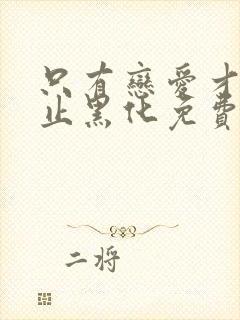 只有戀愛才
止黑化免費
二將